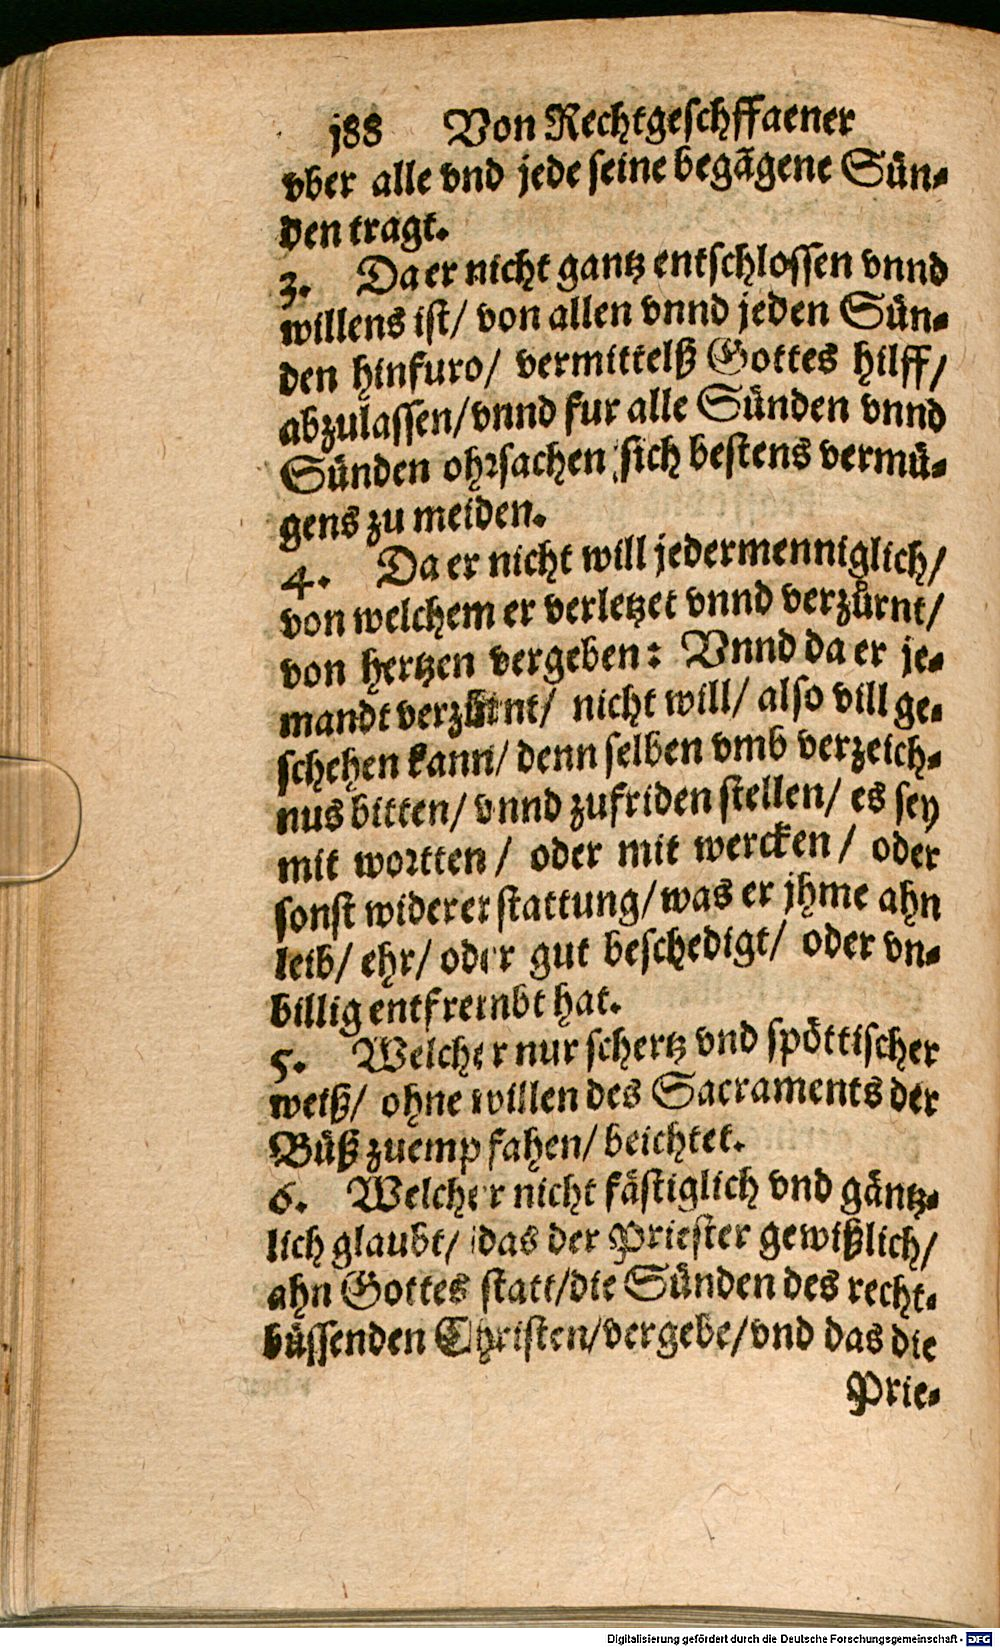 j88 Von Rechtgeschffaener
vber alle vnd jede seine begãgene Sün-
den tragt.
3. Da er nicht gantz entschlossen vnnd
willens ist/ von allen vnnd jeden Sün-
den hinfuro/ vermittelß Gottes hilff/
abzulassen/vnnd fur alle Sünden vnnd
Sünden ohrsachen sich bestens vermü-
gens zu meiden.
4. Da er nicht will jedermenniglich/
von welchem er verletzet vnnd verzůrnt/
von hertzen vergeben: Vnnd da er je-
mandt verzürnt/ nicht will/ also vill ge-
schehen kann/ denn selben vmb verzeich-
nus bitten/ vnnd zufriden stellen/ es sey
mit wortten/ oder mit wercken/ oder
sonst widererstattung/was er jhme ahn
leib/ ehr/ oder gut beschedigt/ oder vn-
billig entfrembt hat.
5. Welcher nur schertz vnd spöttischer
weiß/ ohne willen des Sacraments der
Büß zuempfahen/ beichtet.
6. Welcher nicht fästiglich vnd gäntz-
lich glaubt/ das der Priester gewißlich/
ahn Gottes statt/die Sünden des recht-
büssenden Christen/vergebe/vnd das die
Prie-
Digitalisierung gefördert durch die Deutsche Forschungsgemeinschaft - DFG